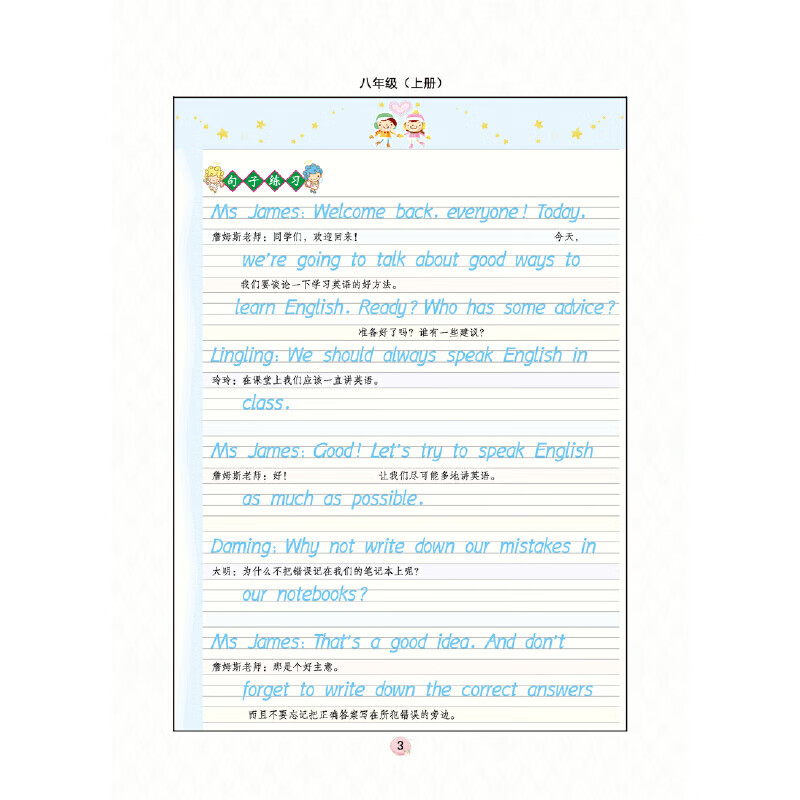 八年级（上册）
句子练习
Ms James: Welcome back, everyone! Today,
詹姆斯老师：同学们，欢迎回来！ 今天，
we're going to talk about good ways to
我们要谈论一下学习英语的好方法。
learn English. Ready? Who has some advice?
准备好了吗？谁有一些建议？
Lingling: We should always speak English in
玲玲：在课堂上我们应该一直讲英语。
class.
Ms James: Good! Let's try to speak English
詹姆斯老师：好！ 让我们尽可能多地讲英语。
as much as possible.
Daming: Why not write down our mistakes in
大明：为什么不把错误记在我们的笔记本上呢？
our notebooks?
Ms James: That's a good idea. And don't
詹姆斯老师：那是个好主意。
forget to write down the correct answers
而且不要忘记把正确答案写在所犯错误的旁边。
3